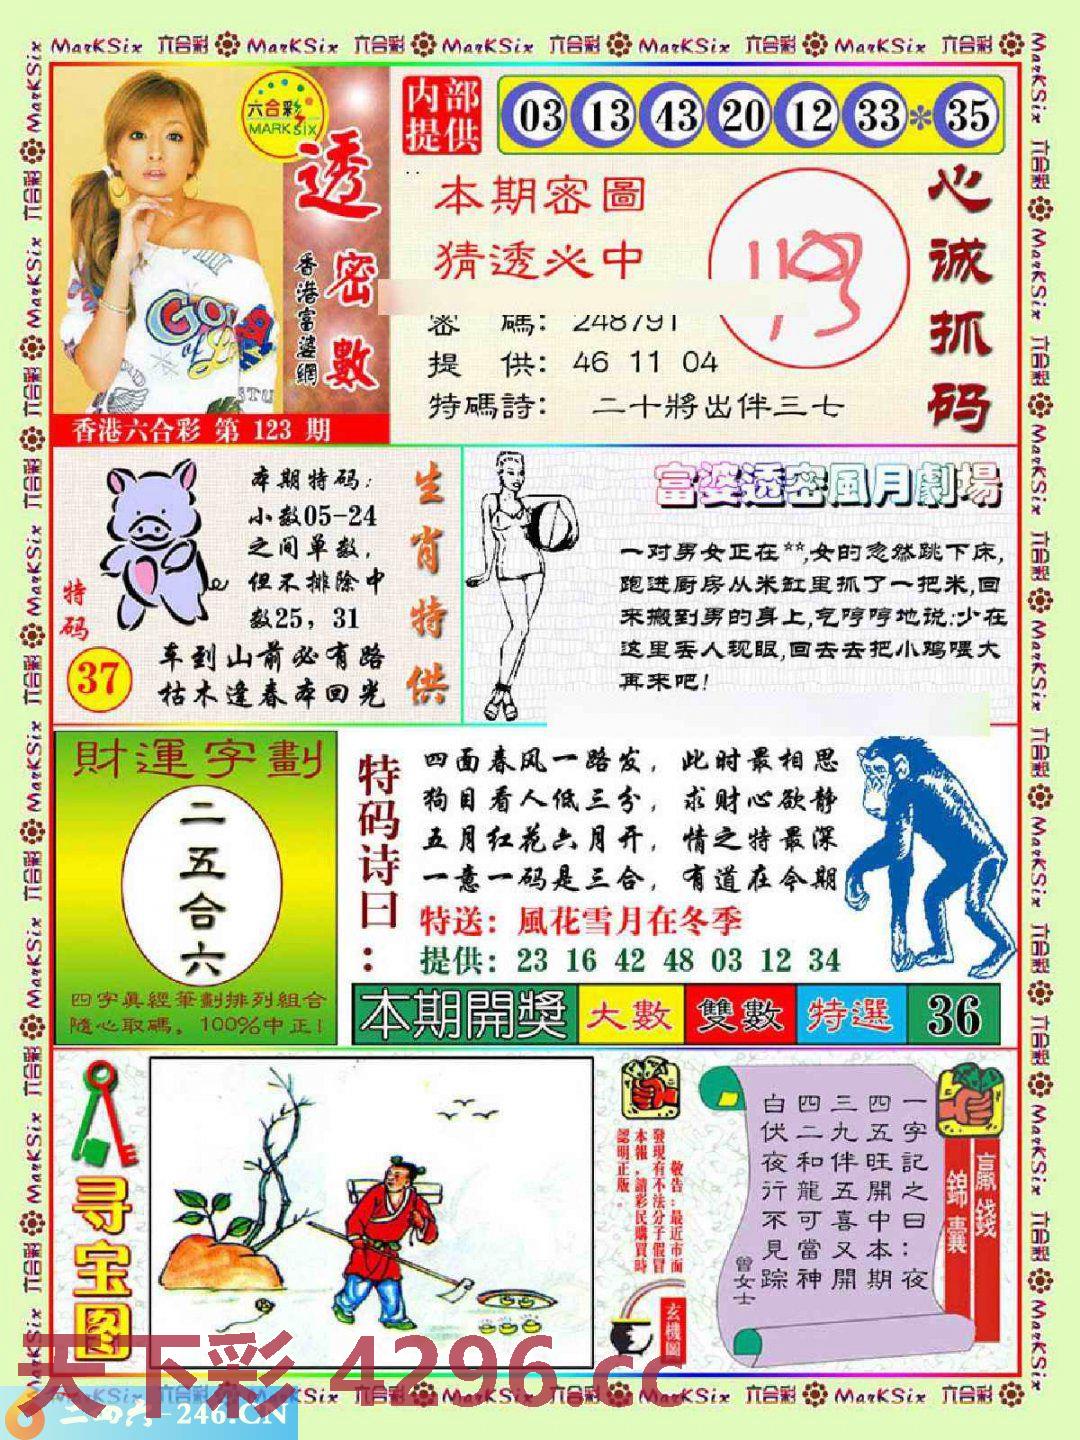 MarKSix 六合彩 MarKSix 六合彩 MarKSix 六合彩 MarKSix 六合彩 MarKSix 六合彩
六合彩
MARK SIX
透密數
香港富婆網
香港六合彩 第 123 期
内部
提供
03 13 43 20 12 33 * 35
本期密圖
猜透必中
密 碼: 248791
提 供: 46 11 04
特碼詩: 二十將出伴三七
心诚抓码
本期特码:
小数05-24
之间单数,
但不排除中
数25, 31
特码
37
车到山前必有路
枯木逢春本回光
生肖特供
富婆透密風月劇場
一对男女正在**,女的忽然跳下床,
跑进厨房从米缸里抓了一把米,回
来搬到男的身上,气哼哼地说:少在
这里丢人现眼,回去去把小鸡喂大
再来吧!
財運字劃
二五合六
四字眞經筆劃排列組合
隨心取碼。100%中正!
特码诗曰:
四面春风一路发, 此时最相思
狗目看人低三分, 求财心欲静
五月红花六月开, 情之特最深
一意一码是三合, 有道在今期
特送: 風花雪月在冬季
提供: 23 16 42 48 03 12 34
本期開獎 大數 雙數 特選 36
寻宝图
敬告:最近市面
發現有不法分子假冒
本報,請彩民購買時
認明正版。
玄機圖
贏錢
錦囊
一字記之曰:夜
四五旺開中本期
三九伴五喜又開
四二和龍可當神
白伏夜行不見踪
曾女士
天下彩 4296.cc
-246.CN
MarKSix 六合彩 MarKSix 六合彩 MarKSix 六合彩 MarKSix 六合彩